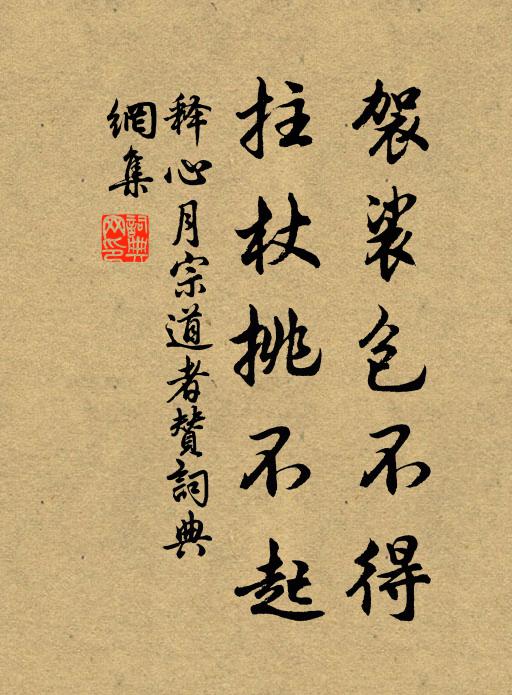 袈裟包不得
拄杖挑不起
释心月宗道者赞詞典
網集
詞典网印